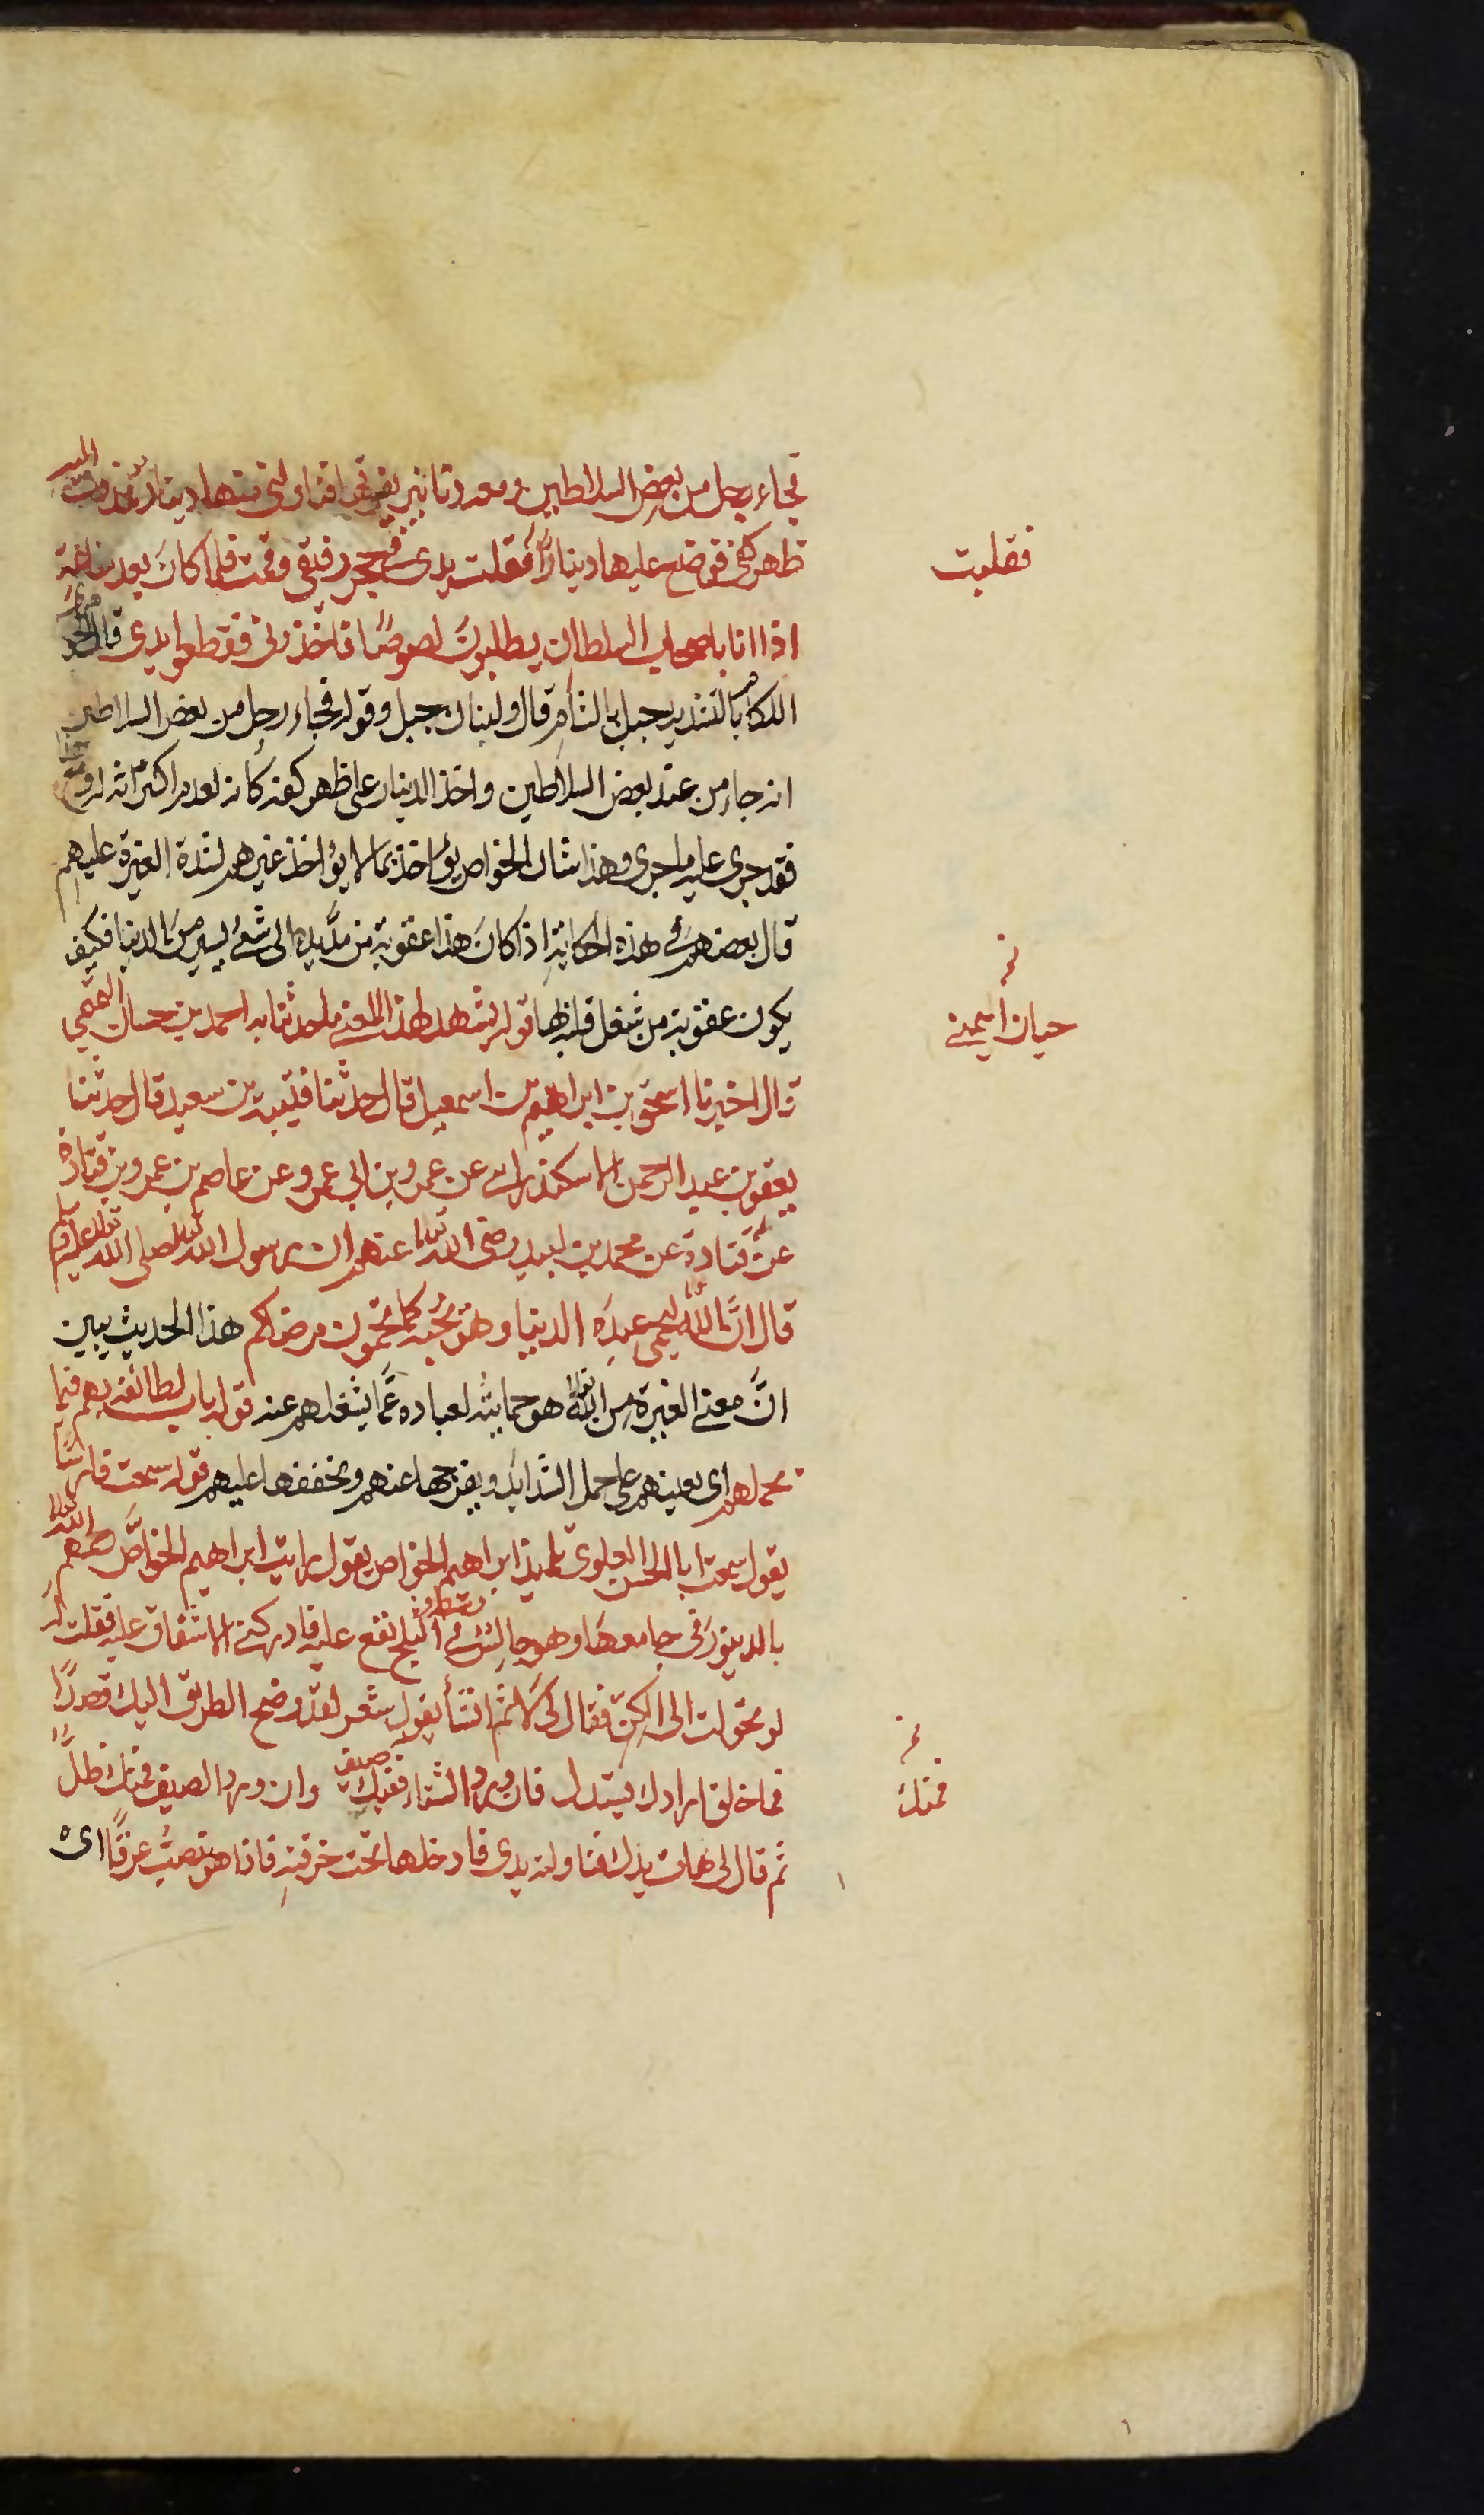 فجاء رجل من بعض السلاطين ومعه دنانير يفرقها فناولني منها دينارا فمددت اليه
ظهر كفي فوضع عليها دينارًا فقلت يدى في حجر رفيقي وقمت فلما كان بعد ساعة
فقلبت
اذا انا باصحاب السلطان يطلبون لصوصًا فاخذوني فقطعوا يدى قال
اللكام بالتشديد جبل بالشام قال ولبنان جبل وقوله فجاء رجل من بعض السلاطين
انه جاء من عند بعض السلاطين واخذ الدينار على ظهر كفه كانه لعدم اكتراثه
فقد جرى عليه ما جرى وهذا شان الخواص يؤاخذ بما لا يؤاخذ غيرهم لشدة الغيرة عليهم
قال بعضهم في هذه الحكاية اذا كان هذا عقوبة من مدّ يده الى شئ يسير من الدنيا فكيف
يكون عقوبة من شغل قلبه بها قوله يشهد لهذا المعنى ما حدثنا به احمد بن حسان
نخ
حيان التميمي
قال اخبرنا اسحق بن ابراهيم بن اسمعيل قال حدثنا قتيبة بن سعيد قال حدثنا
يعقوب بن عبد الرحمن الاسكندراني عن عمرو بن ابي عمرو عن عاصم بن عمرو بن قتادة
عن قتادة عن محمد بن لبيد رضى الله تعالى عنهم ان رسول الله صلى الله تعالى عليه وسلم
قال انّ الله تعالى ليحمي عبده الدنيا وهو يحبّه كما تحمون مرضاكم هذا الحديث يبين
انّ معنى الغيرة من الله تعالى هو حمايته لعباده عمّا يشغلهم عنه قوله باب لطائفه بهم فيما
يحملهم اى يعينهم على حمل الشدائد ويفرجها عنهم ويخففها عليهم قوله سمعت فارسًا
يقول سمعت ابا الحسن العلوى تلميذ ابراهيم الخواص يقول رايت ابراهيم الخواص رحمه الله تعالى
بالدينور في جامعها وهو جالس في وسطه والثلج تقع عليه فادركني الاشفاق عليه فقلت له
لو تحولت الى الكن فقال لى لا ثم انشأ يقول شعر لقد وضح الطريق اليك قصدًا
فما خلق ارادك يستدل فان ورد الشتاء ففيك صيف وان ورد الصيف فمنك ظلّ
نخ
فمنك
ثم قال لى هات يدك فناولته يدى فادخلها تحت خرقته فاذا هو تصبّ عرقًا اى